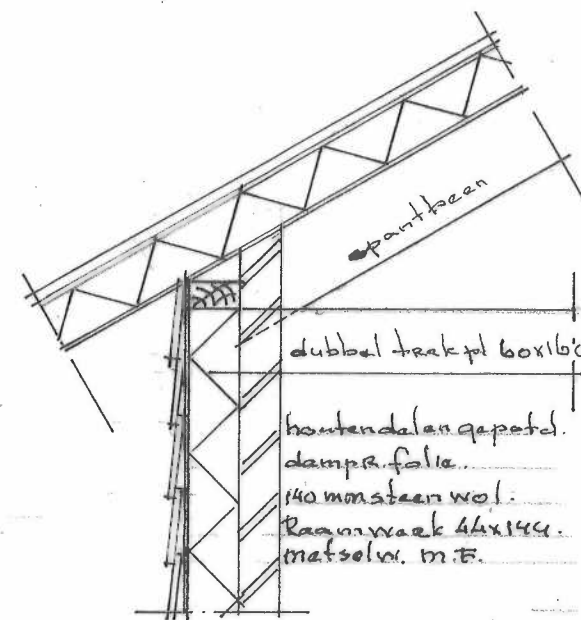 spantbeen
dubbel trek pl 60x160
houtendelen gepotd.
dampr. folie.
140 mm steenwol.
Raamwerk 44x144.
metselw. m.F.